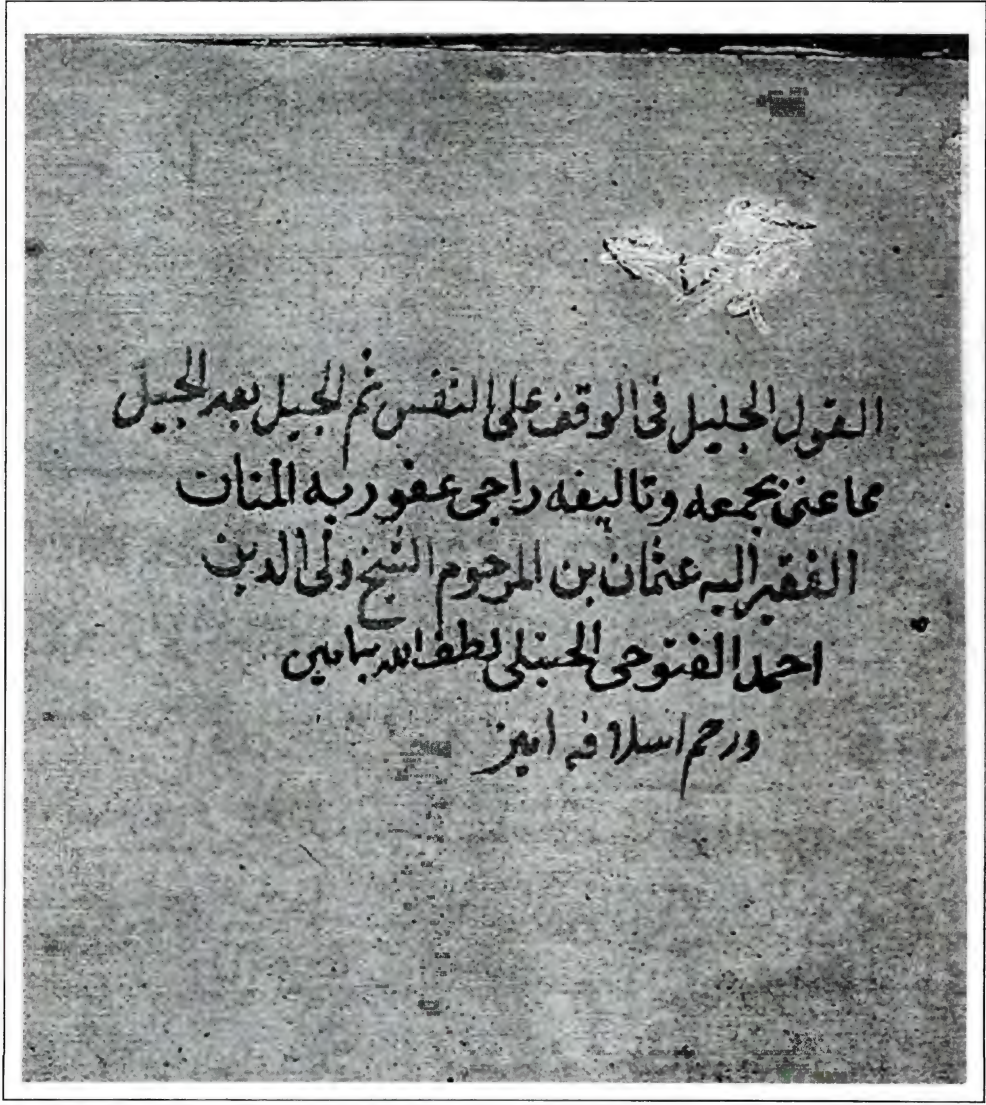 القول الجليل فى الوقف على النفس ثم الجيل بعد الجيل
مما عنى بجمعه وتاليفه راجى عفو ربه المنان
الفقير اليه عثمان بن المرحوم الشيخ ولى الدين
احمد الفتوحى الحنبلى لطف الله بهما امين
ورحم اسلافه امين